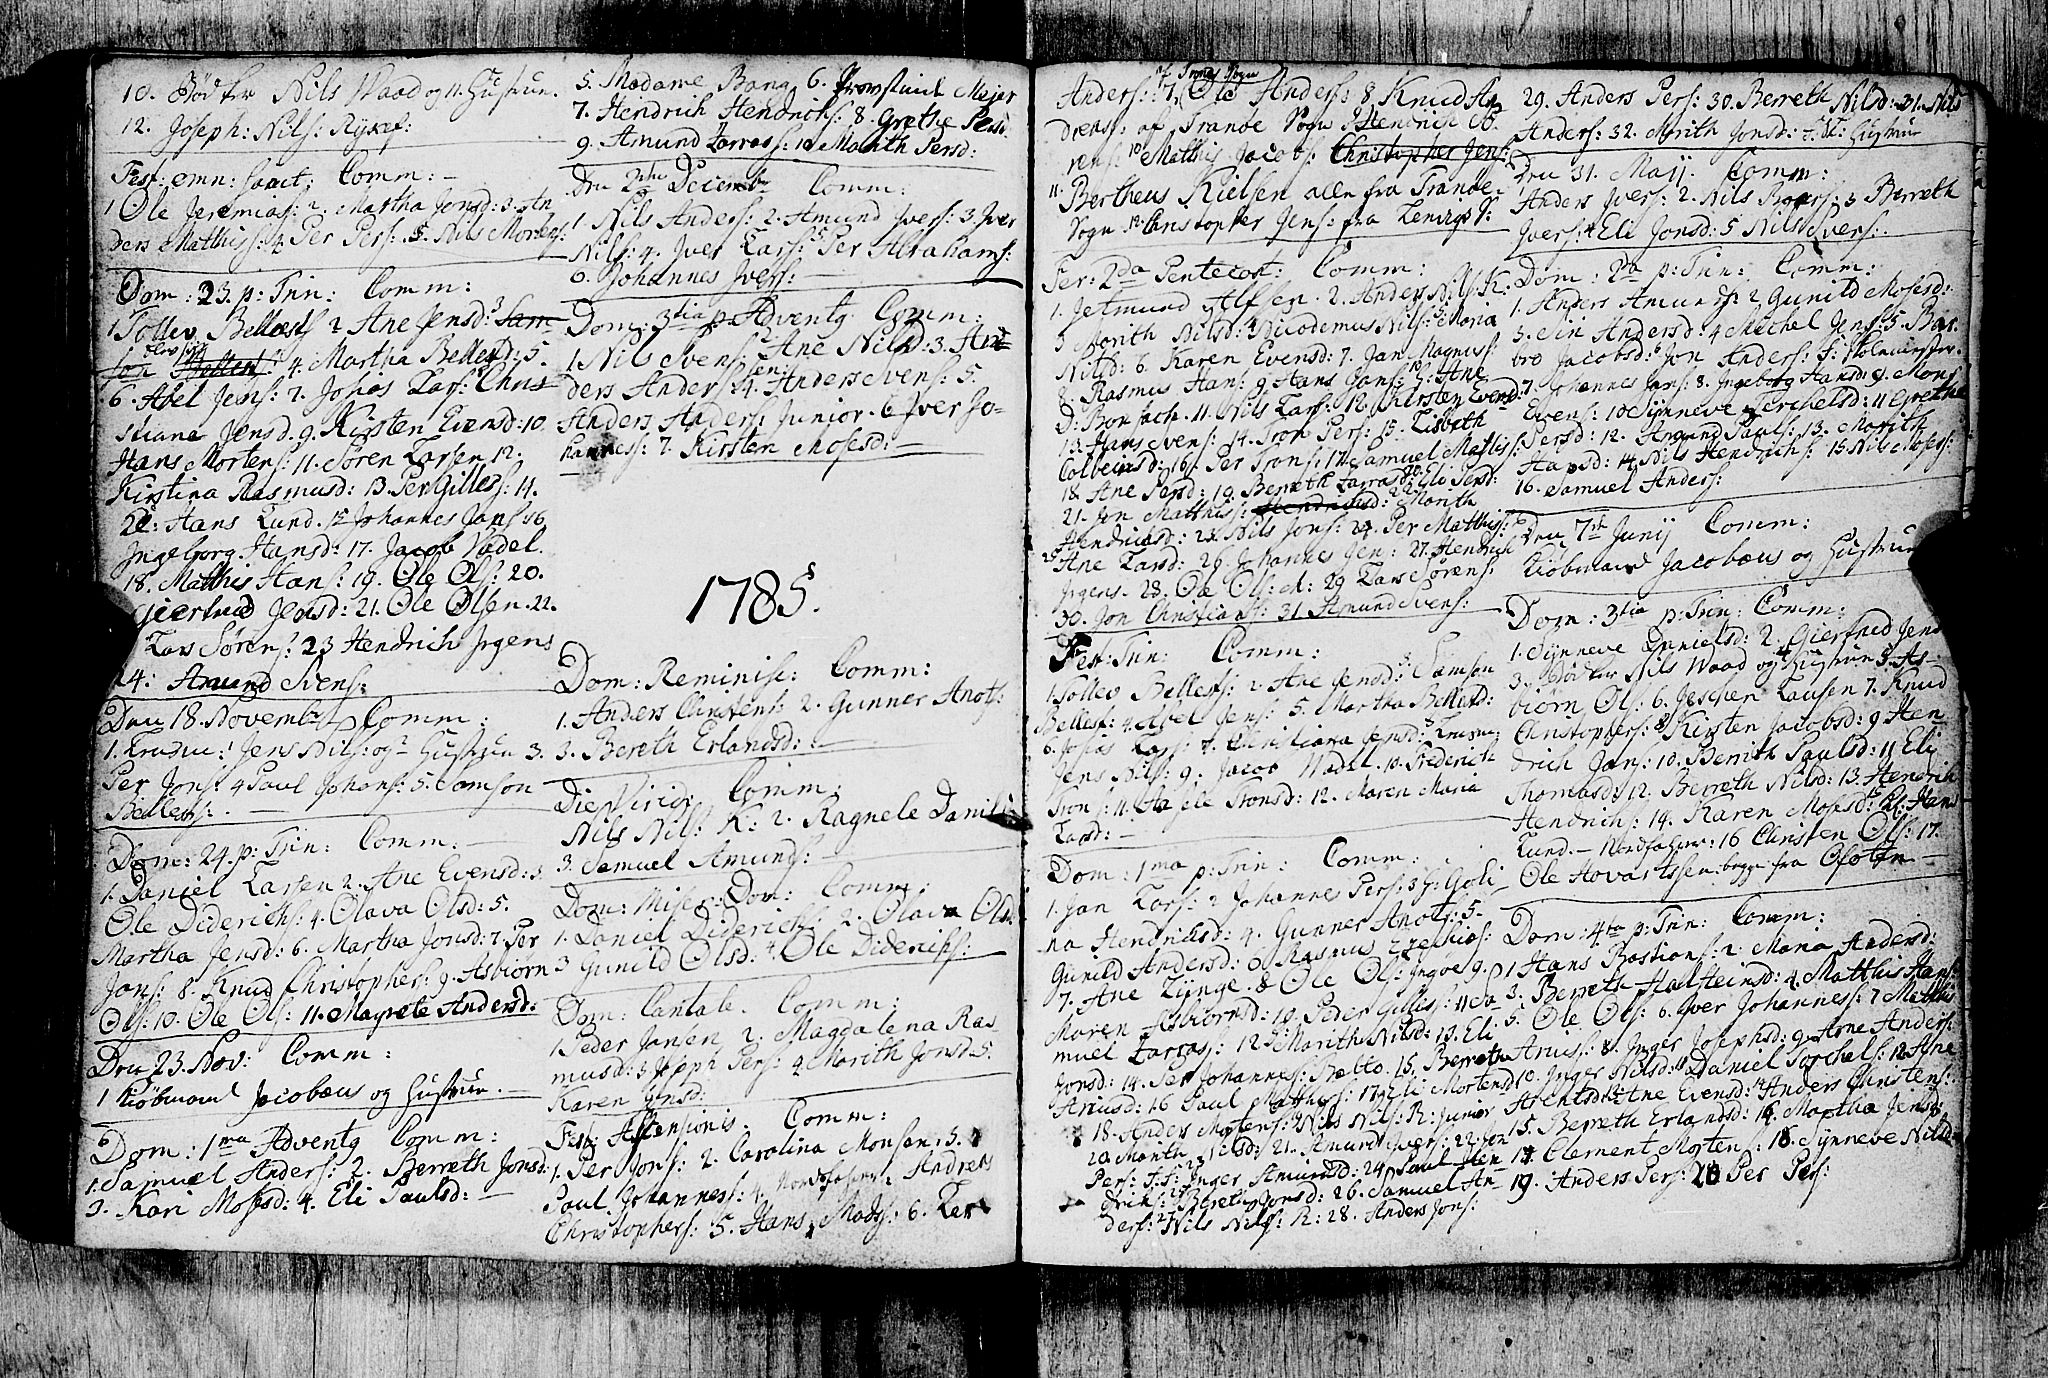 10. Bødker Nils Waad og 11. Hustrue.
12. Joseph: Nils: Rysef:
Fest: omn: Sanct: Comm: -
1 Ole Jeremias: 2. Martha Jonsd: 3. An
ders Mathiss: 4. Per Pers: 5. Nils Mortens:
Dom: 23. p: Trin: Comm:
1 Tollev Bellesf: 2 Ane Jensd: 3 Sam
son 4. Martha Bellesd: 5.
6. Abel Jens: 7. Josias Lars: Chris
stiane Jensd. 9. Kirsten Evensd: 10
Hans Mortens: 11. Søren Larsen 12.
Kirstina Rasmusd: 13. Per Gilless: 14.
Hans Lund. 15 Johannes Jans 16
Ingeborg Hansd: 17. Jacob Wadel.
18. Mathis Hans: 19. Ole Ols: 20.
Giertrud Jensd: 21. Ole Olsen. 22.
Lars Sørens: 23 Hendrich Jrgens
24: Amund Svens:
Den 18. Novembr Comm:
1. Jens Nils: og 2 Hustrue 3.
Per Jons: 4 Paul Johans: 5. Samson
Bellesf:
Dom: 24. p: Trin: Comm:
1. Daniel Larsen 2. Ane Evensd: 3
Ole Diderichs: 4. Olava Olsd: 5.
Martha Jensd: 6. Martha Jonsd: 7. Per
Jons: 8. Knud Christophers: 9. Asbiørn
Ols: 10. Ole Ols: 11. Magrete Andersd:
Den 23. Nov: Comm:
1 Kiøbmand Jacobæus og Hustrue.
Dom: 1ma Adventg Comm:
1. Samuel Anders: 2. Berreth Jonsd:
3. Kari Mosesd: 4. Eli Paulsd: -
5. Madame Bang 6. Meier
7. Hendrich Hendrichs: 8. Grethe Persd:
9. Amund Larss: 10 Marith Persd:
Den 2den Decembr Comm:
1. Nils Anders: 2. Amund Jvers: 3. Jver
Nils: 4. Jver Lars: 5 Per Abrahams:
6. Johannes Jvers:
Dom: 3tia p. Adventg Comm:
1 Nils Svens: 2 Ane Nilsd: 3. An
ders Anders: sen: 4. Anders Svens: 5.
Anders Anders: Junior. 6 Jver Jo-
hanness: 7. Kirsten Mosesd: -
1785.
Dom: Reminisc: Comm:
1. Anders Christens: 2. Gunner Anots:
3. Bereth Erlandsd: -
Die Virid: Comm:
Nils Nils: K: 2. Ragnele Daniels
3. Samuel Amunds:
Dom: Miser: Dom: Comm:
1. Daniel Diderichs 2. Olava Olsd.
3 Gunild Olsd: 4. Ole Diderichs:
Dom: Cantate. Comm:
1. Peder Jansen 2. Magdalena Ras
musd: 3 Joseph Pers: 4 Marith Jonsd. 5.
Karen Jonsd:
Fest: Ascensionis. Comm:
1. Per Jons: 2. Carolina Monsen. 3.
Paul Johanness: 4. Andreas
Christophers: 5. Hans Mads: 6. Lars
af Tranøe Sogn
Anders: 7. Ole Anders: 8 Knud An
drens: af Tranøe Sogn 9 Hendrich
rens: 10 Mathis Jacobs: Christopher Jens:
11. Bertheus Nielsen alle fra Tranøe
Sogn 12. Christopher Jens: fra Lenvigs S:
Fer: 2da Pentecost: Comm:
1. Jetmund Alfsen. 2. Anders Nils: K:
3 Marith Nilsd: 4 Nicodemus Nils: 5 Maria
Nilsd: 6. Karen Evensd: 7. Jan Magnus:
8. Rasmus Hans: 9 Hans Jans: 10 Ane
D: Bonsach. 11. Nils Lars: 12. Kirsten Evensd:
13. Hans Svens: 14. Tron Pers: 15. Lisbeth
Colbensd: 16. Per Trons: 17 Samuel Mathis:
18. Ane Persd: 19. Berreth Larsd: 20. Eli Persd:
21. Jon Matthis: Hendrichsd: 22. Marith
Hendrichsd: 23. Nils Jons: 24. Per Matthis:
25 Ane Larsd: 26 Johannes Jen: 27. Hendrich
Jrgens. 28. Ole Ols: 29 Lars Sørens:
30. Jon Christians: 31. Amund Svens:
Fest: Trin: Comm:
1. Tollev Bellesf: 2 Ane Jensd: 3. Samson
Bellesf: 4. Abel Jens: 5. Martha Bellesd:
6. Josias Lars: 7. Christiana Jensd: 8
Jens Nils: 9. Jacob Wadel. 10. Frederich
Trons: 11. Tronsd: 12. Maren Maria
Larsd: -
Dom: 1ma p: Trin: Comm:
1. Jan Lars: 2 Johannes Pers: 3 Goli
na Hendrichsd: 4. Gunner Anots: 5.
Gunild Andersd: 6 Rasmus Ezechias:
7. Ane Lÿnge. 8 Ole Ols: 9.
Maren Asbiørnsd: 10. Peder Gilless: 11 Sa
muel Larss: 12 Marith Nilsd: 13. Eli
Jonsd: 14. Per Johannes: 15. Berrethe
Ariusd: 16 Paul Mathis: 17 Eli Mortensd
18. Anders Mortens: 19 Nils Nils: K: junior
20 Marith Nilsd: 21. Amund Jvers: 22. Jon
Pers: 23 Inger Amundsd: 24 Paul Hen
drichs: 25 Bereth Jonsd: 26. Samuel An
ders: 27 Nils Nils: K: 28. Anders Jons:
29. Anders Pers: 30. Berreth Nilsd: 31. Nils
Anders: 32. Marith Jonsd: Hustrue
Den 31. Maij. Comm:
1 Anders Jvers: 2. Nils Roars: 3 Berreth
Jvers: 4 Eli Jonsd: 5 Nils Svers:
Dom: 2da p: Trin: Comm:
1. Anders Amunds: 2 Gunild Mosesd:
3. Siri Andersd: 4 Michel Jens: 5. Bar
bro Jacobsd: 6 Jon Anders:
7. Johannes Jans: 8. Ingeborg Hansd: 9. Mons
Evens: 10 Sÿnneve Torchelsd: 11 Grethe
Persd: 12. Amund Pauls: 13. Marith
Hansd: 14. Nils Hendrichs: 15. Nils Moses:
16. Samuel Anders:
Den 7de Junij Comm:
Kiøbmand Jacobæus og Hustrue
Dom: 3tia p: Trin: Comm:
1. Sÿnneve Danielsd: 2. Giertrud Jensd
3. Bødker Nils Waad og Hustrue 5. As-
biørn Ols: 6. Jeschen Lausen 7. Knud
Christophers: 8 Kirsten Jacobsd: 9 Hen
drich Jans: 10. Berrith Paulsd: 11 Eli
Thomasd: 12. Berreth Nilsd: 13. Hendrich
Hendrichs: 14. Karen Mosesd: 15. Hans
Lund. - Nordfahrer: 16 Christen Ols: 17.
Ole Hovartssen begge fra Ofoten -
Dom: 4ta p: Trin: Comm:
1 Hans Bastians: 2. Maria Andersd:
3. Berreth Halsteinsd: 4. Matthis Hans:
5. Ole Ols: 6. Jver Johanness: 7 Matthis
Arius: 8. Inger Josephsd: 9. Arne Anders:
10. Inger Nilsd: 11 Daniel Torchels: 12 Ane
Arentsd: 13. Ane Evensd: 14 Anders Christens:
15. Berreth Erlandsd: 16. Martha Jensd:
17. Clement Mortens: 18. Sÿnneve Nilsd:
19. Anders Pers: 20 Per Pers: